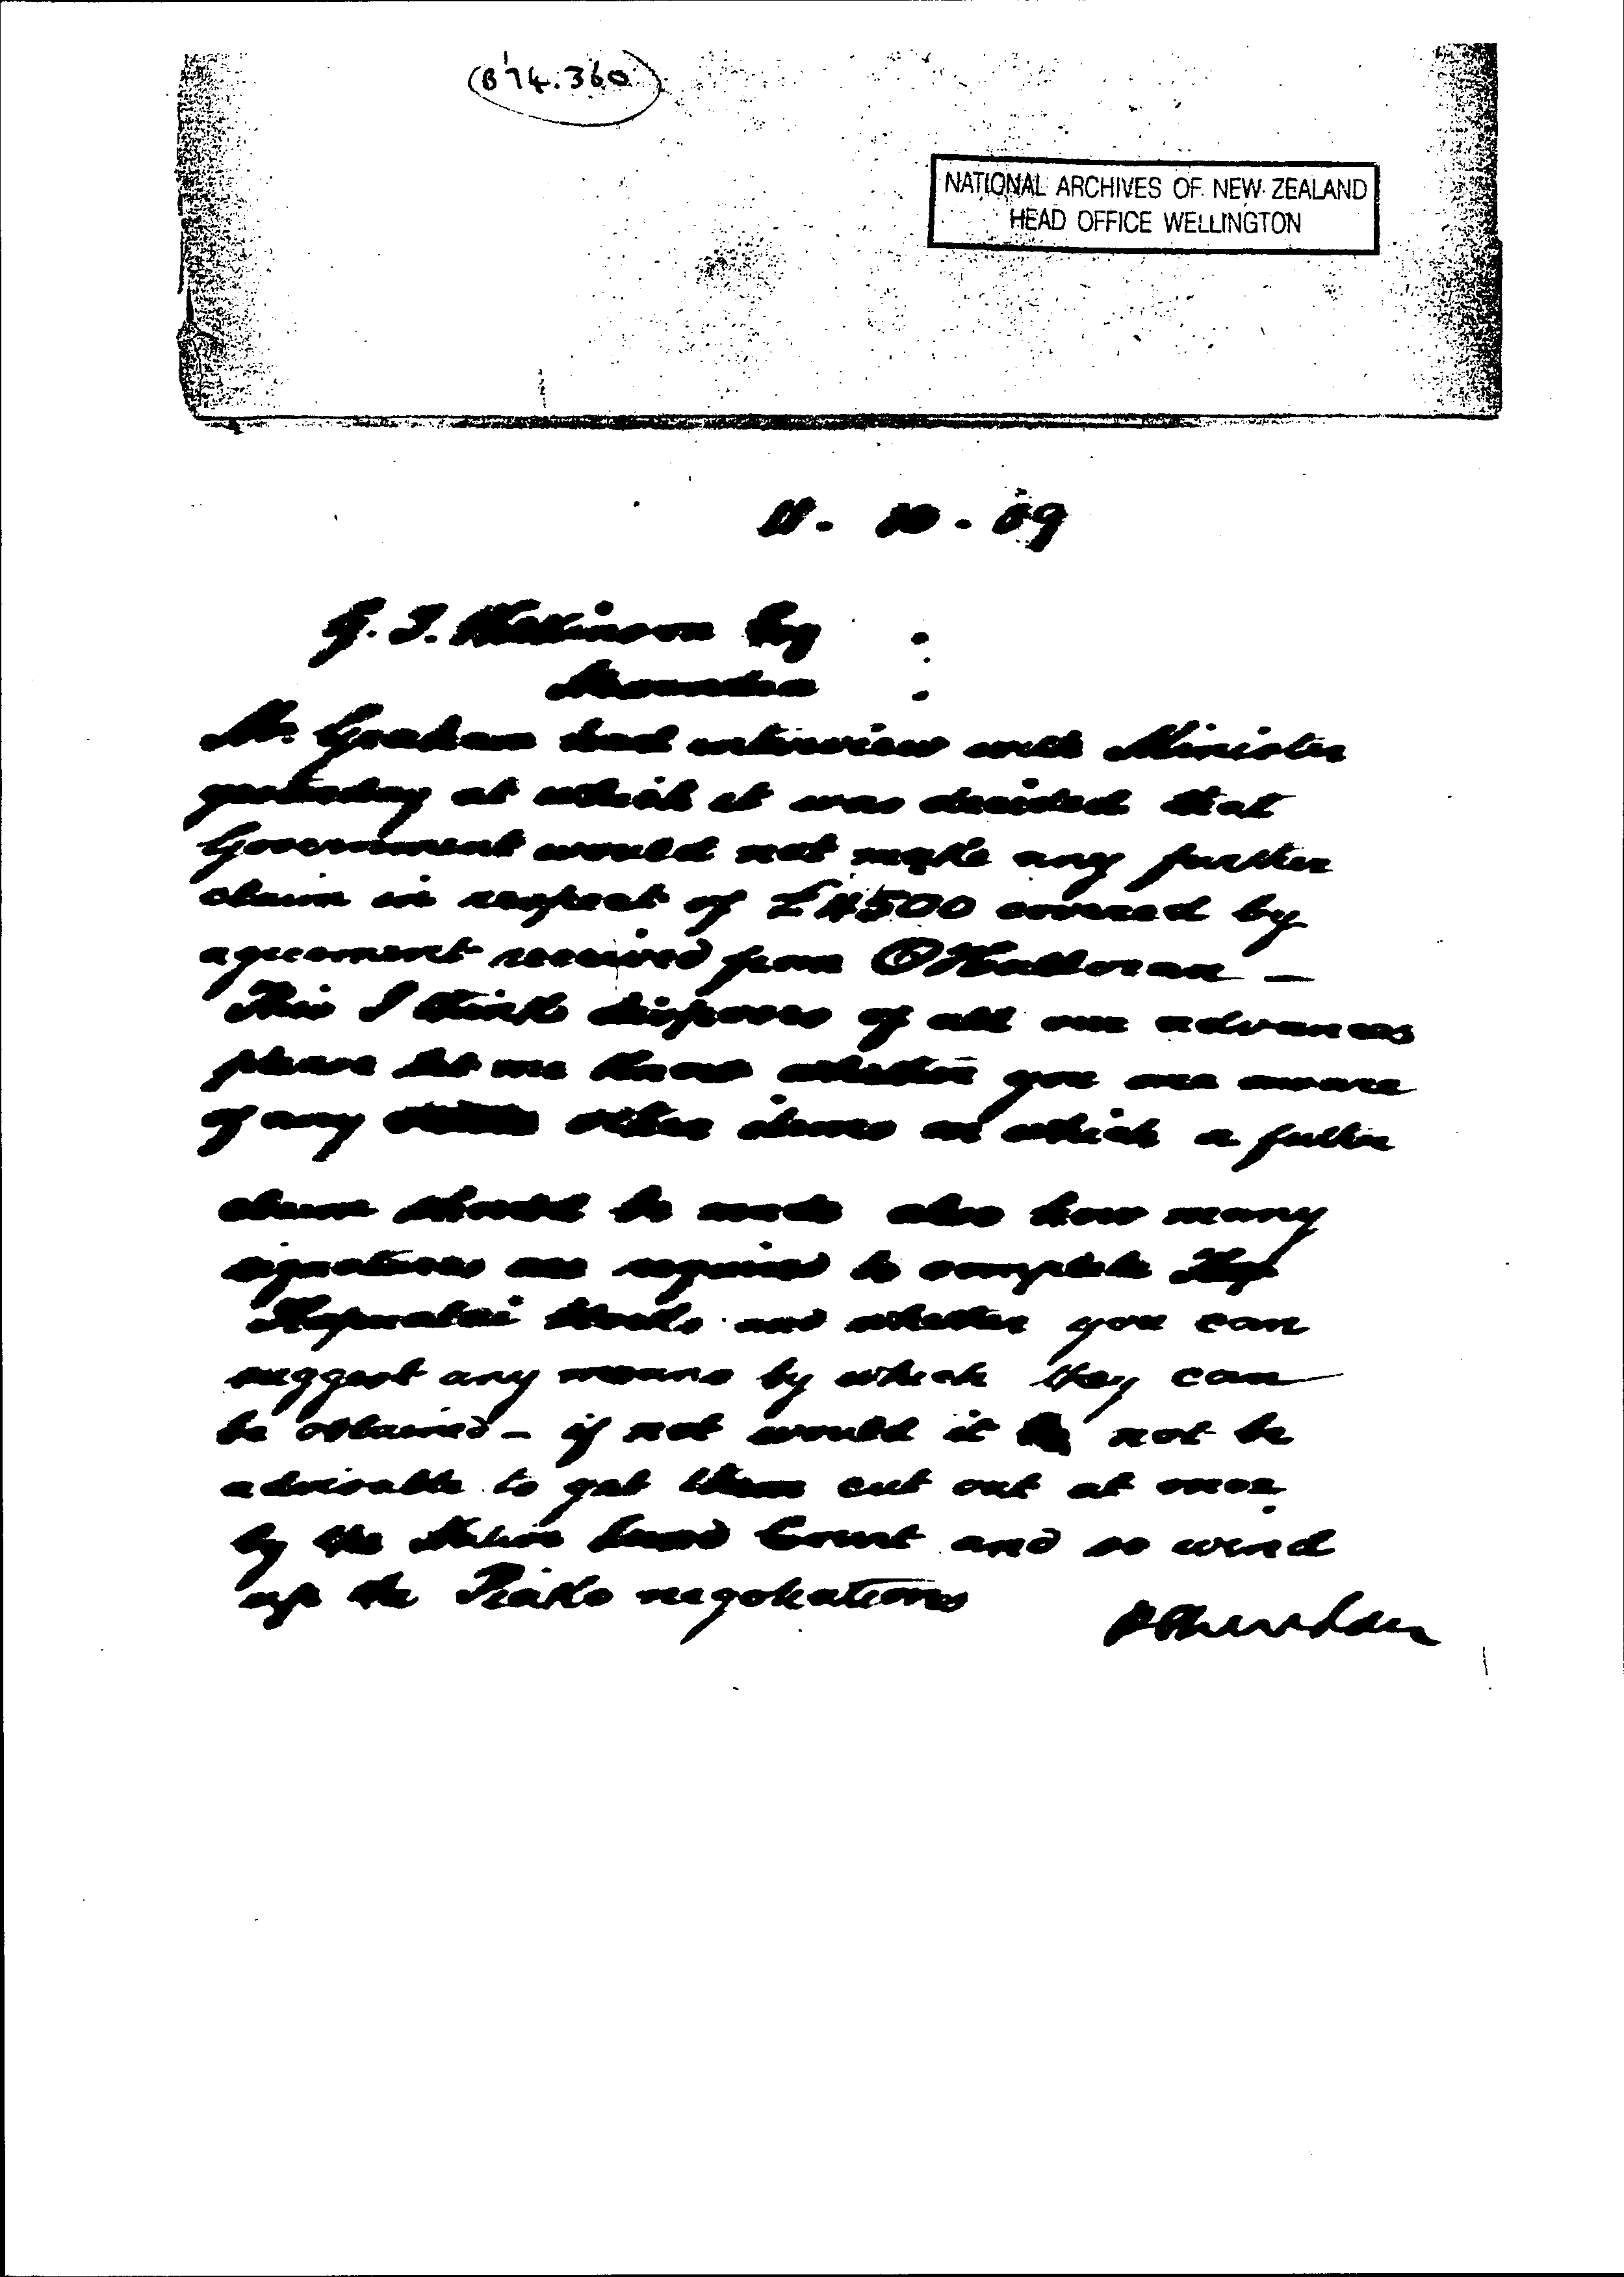 (B74.360)
NATIONAL ARCHIVES OF NEW ZEALAND
HEAD OFFICE WELLINGTON
11. 10. 89
G. T. Wilkinson Esq
Mr. Graham had interview with Minister
yesterday at which it was decided that
Government would not make any further
claim in respect of £4500 covered by
agreement received from O'Halloran —
This I think disposes of all our advances
please let me know whether you are aware
of any other items on which a further
claim should be made also how many
signatures are required to complete
deeds and whether you can
suggest any means by which they can
be obtained — if not would it not be
advisable to get them cut out at once
by the Native Land Court and so wind
up the Piako negotiations